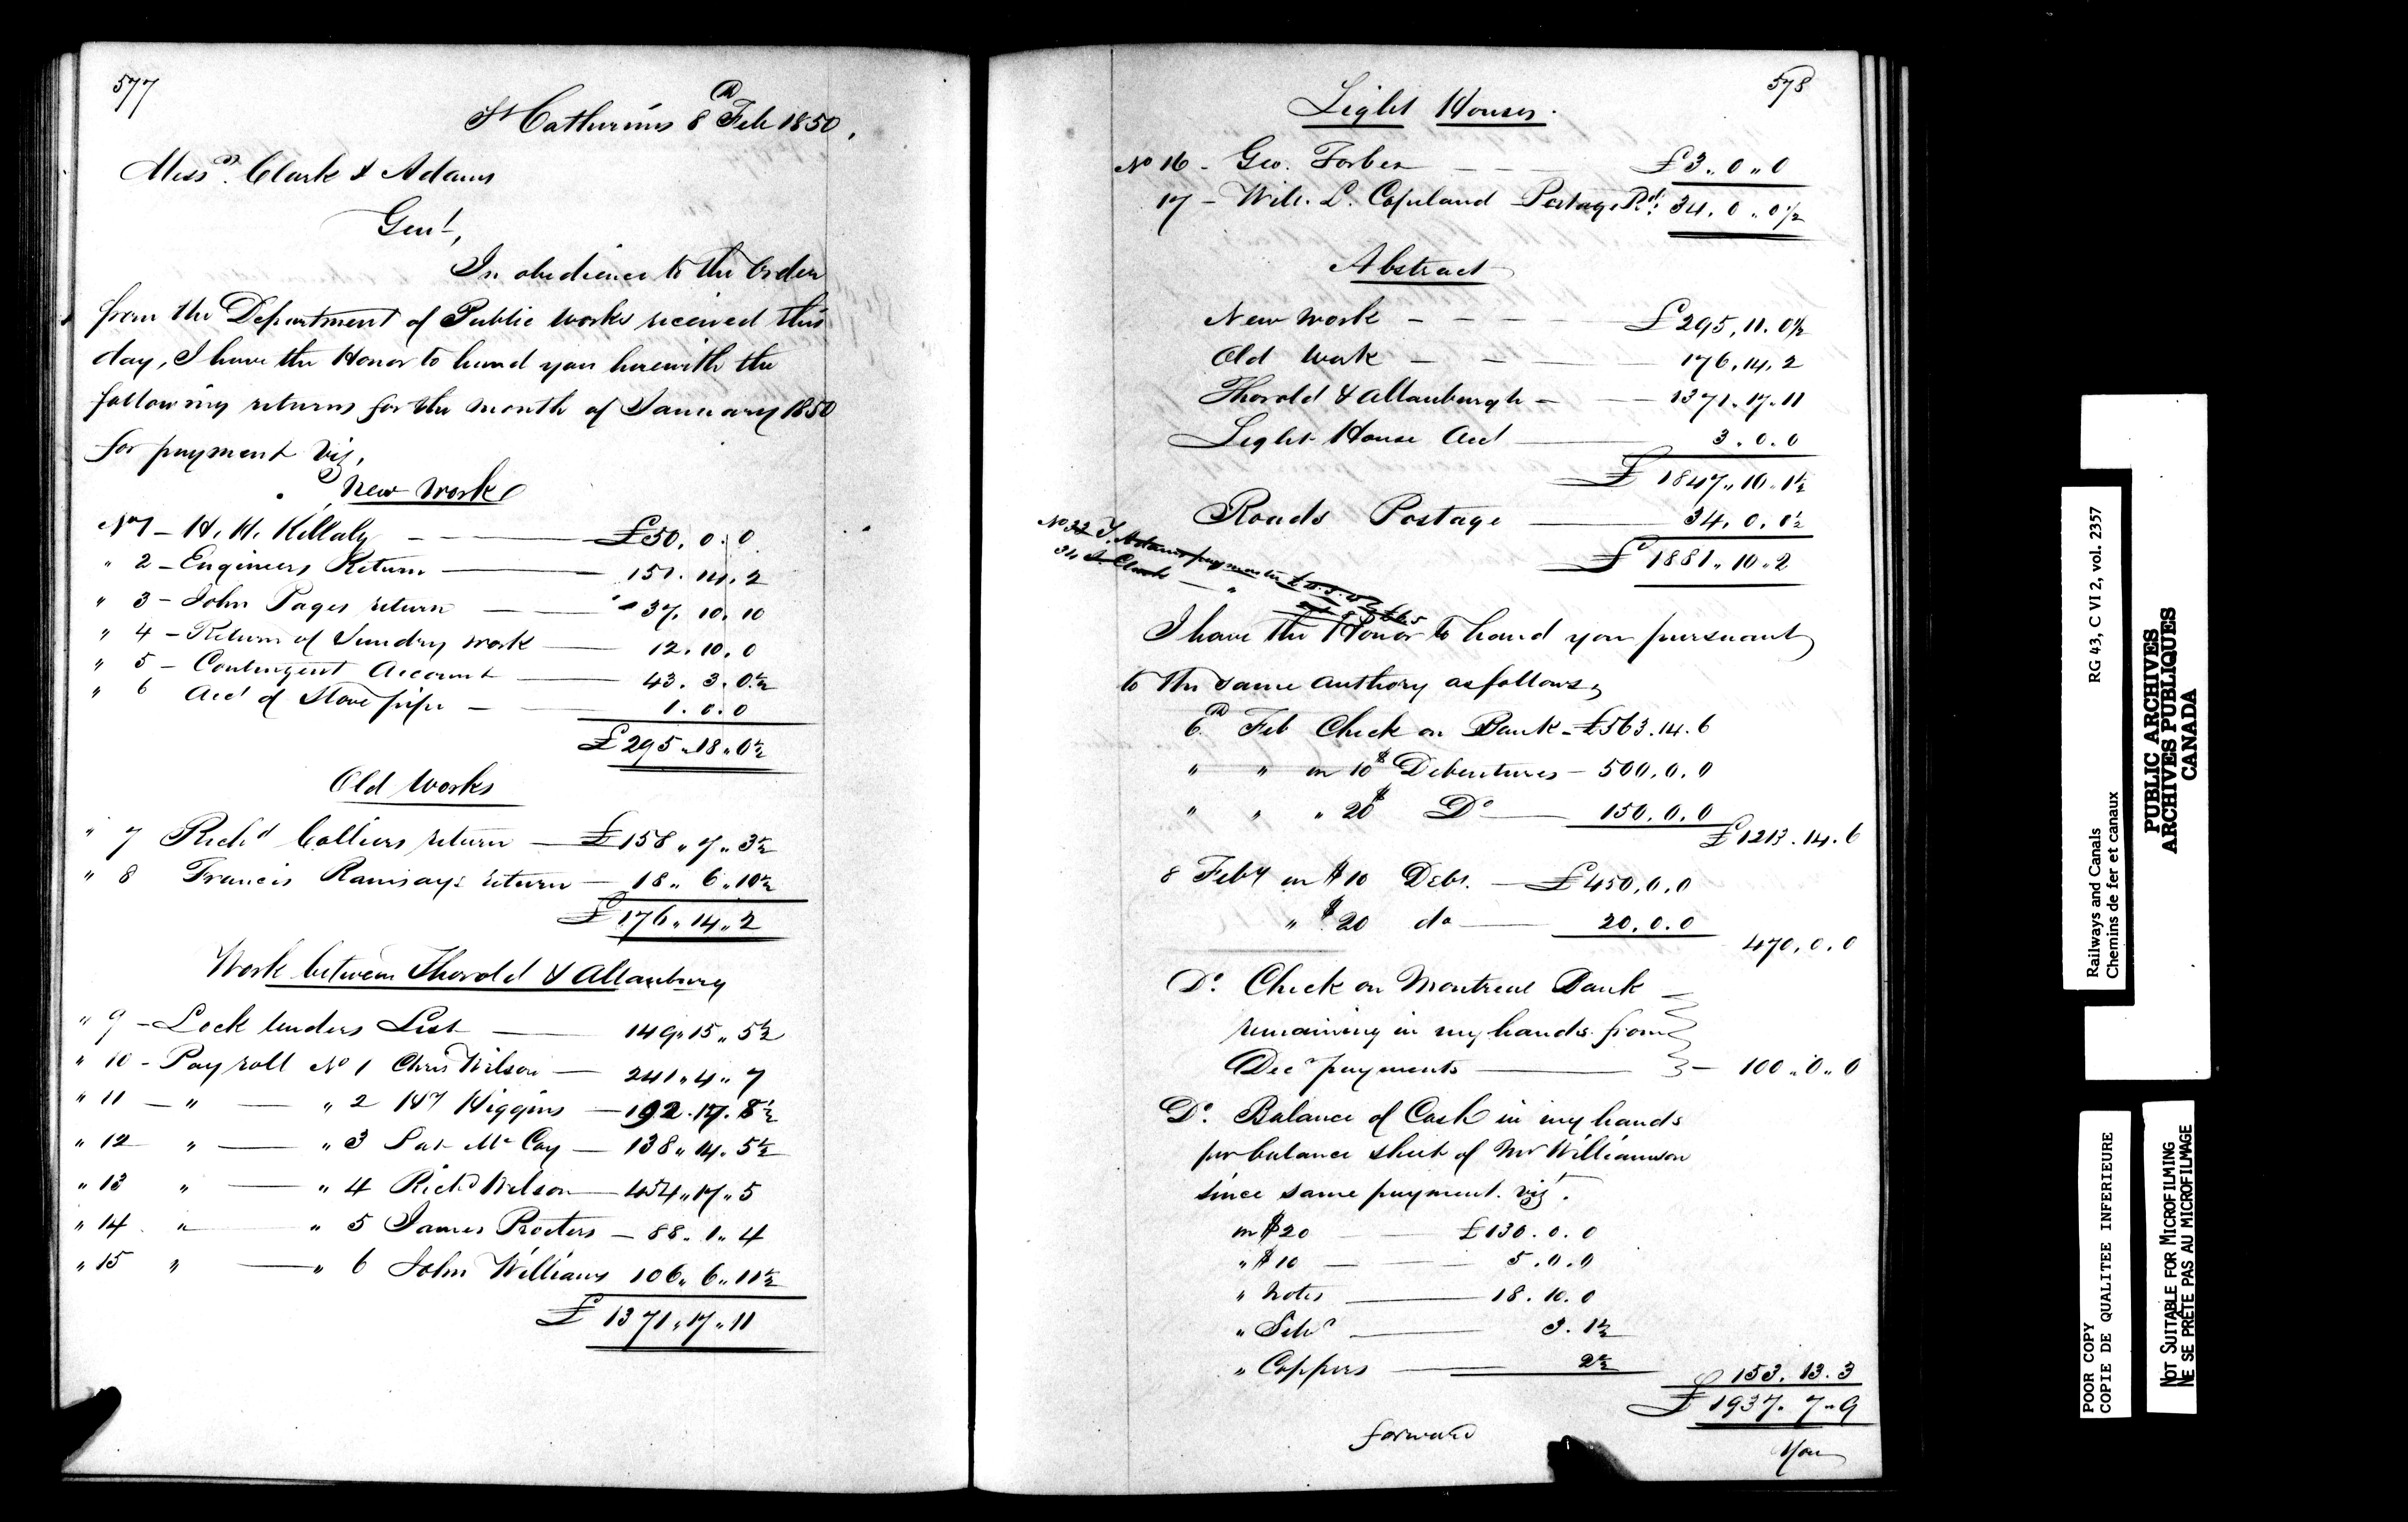 577
St Catharines 8th Feb 1850.
Messrs. Clark & Adams
Gent,
In obedience to the Order
from the Department of Public Works received this
day, I have the Honor to hand you herewith the
following returns for the month of January 1850
for payment viz,
New Work
No 1 - H. H. Killaly £50. 0. 0
" 2 - Engineers Return 151. 14. 2
" 3 - John Pages return 37. 10. 10
" 4 - Return of Sundry work 12. 10. 0
" 5 - Contingent Account 43. 3. 0½
" 6 Acct of Stove pipe 1. 0. 0
£295. 18. 0½
Old Works
" 7 Richd Colliers return £158 " 7 " 3½
" 8 Francis Ramsays return 18 " 6 " 10½
£176 " 14 " 2
Work between Thorold & Allanburg
" 9 - Lock tenders List 149 " 15 " 5½
" 10 - Pay roll No 1 Chris Wilson 241 " 4 " 7
" 11 - " " 2 Wm Higgins 192. 17. 8½
" 12 " " 3 Pat McCoy 138 " 14. 5½
" 13 " " 4 Richd Wilson 454 " 17 " 5
" 14 " " 5 James Proctors 88. 1. 4
" 15 " " 6 John Williams 106 " 6 " 11½
£1371 " 17 " 11
578
Light Houses.
No 16 - Geo. Forbes £3 " 0 " 0
17 - Will. L. Copeland Postage Rd: 34. 0. 0½
Abstract
New Work £295. 11. 0½
Old Work 176. 14. 2
Thorold & Allanburgh 1371. 17. 11
Light House Acct 3. 0. 0
£1847 " 10 " 1½
Roads Postage 34. 0. 0½
£1881 " 10 " 2
No 33 T. Adams payment
34 S. Clark "
I have the Honor to hand you pursuant
to the same authory as follows,
6th Feb Check on Bank £563. 14. 6
" " in 10$ Debentures 500. 0. 0
" " " 20$ Do 150. 0. 0
£1213. 14. 6
8 Feby in $10 Debs. £450. 0. 0
" $20 do 20. 0. 0
470. 0. 0
Do. Check on Montreal Bank
remaining in my hands from
Decr payments 100 " 0 " 0
Do. Balance of Cash in my hands
per balance sheet of Mr Williamson
since same payment. viz.
in $20 £130. 0. 0
" $10 5. 0. 0
" Notes 18. 10. 0
" Silvr 3. 1½
" Coppers 2½
£153. 13. 3
£1937. 7 " 9
forward
You
Railways and Canals
Chemins de fer et canaux
RG 43, C VI 2, vol. 2357
PUBLIC ARCHIVES
ARCHIVES PUBLIQUES
CANADA
POOR COPY
COPIE DE QUALITEE INFERIEURE
NOT SUITABLE FOR MICROFILMING
NE SE PRÊTE PAS AU MICROFILMAGE